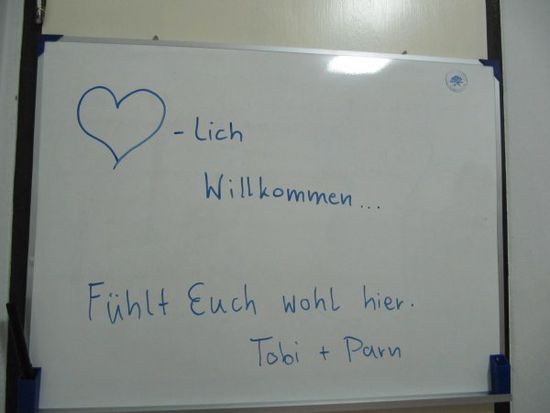 -Lich
Willkommen...
Fühlt Euch wohl hier.
Tobi + Parn